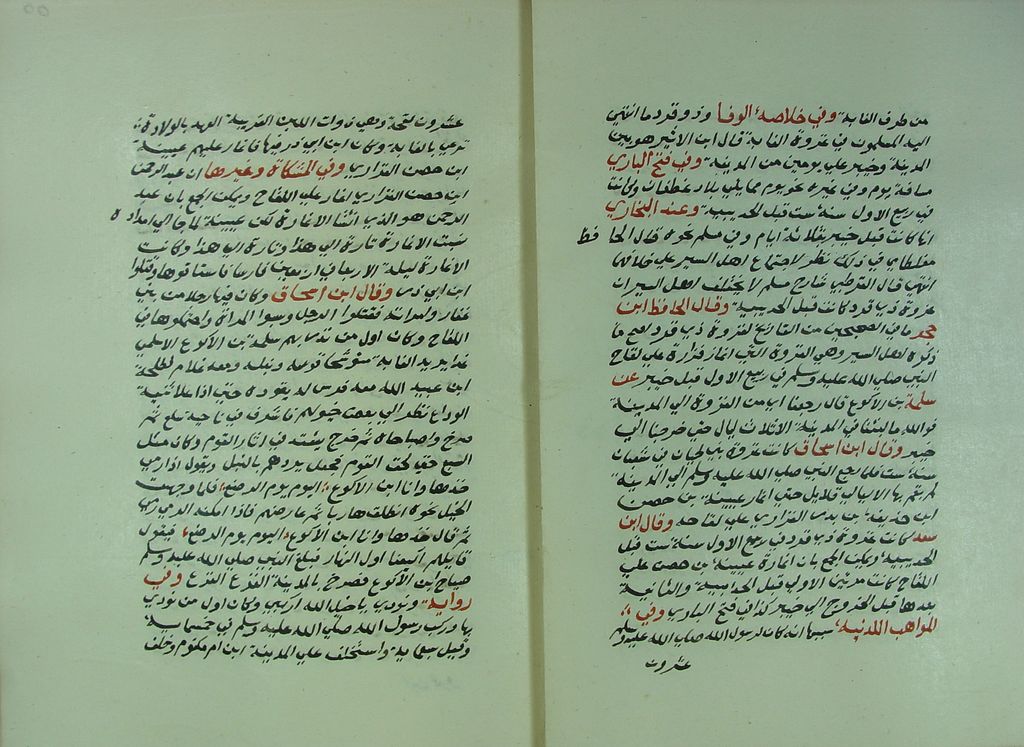 من طرف الغابة وفي خلاصة الوفا وذو قرد ما انتهى
اليه المسلمون في غزوة الغابة قال ابن الاثير هو بين
المدينة وخيبر على يومين من المدينة وفي فتح الباري
مسافة يوم وفي غيره نحو يوم مما يلي بلاد غطفان وكانت
في ربيع الاول سنة ست قبل الحديبية وعند البخاري
انها كانت قبل خيبر بثلاثة ايام وفي مسلم نحوه قال الحافظ
مغلطاي في ذلك نظر لاجتماع اهل السير على خلافهما
انتهى قال القرطبي شارح مسلم لا يختلف اهل السير ان
غزوة ذي قرد كانت قبل الحديبية وقال الحافظ ابن
حجر ما في الصحيحين من التاريخ لغزوة ذي قرد اصح مما
ذكره اهل السير وهي الغزوة التي اغار فزارة على لقاح
النبي صلى الله عليه وسلم في ربيع الاول قبل خيبر عن
سلمة بن الاكوع قال رجعنا اي من الغزوة الى المدينة
فوالله ما لبثنا في المدينة الا ثلاث ليال حتى خرجنا الى
خيبر وقال ابن اسحاق كانت غزوة بني لحيان في شعبان
سنة ست فلما رجع النبي صلى الله عليه وسلم الى المدينة
لم يقم بها الا ليالي قلايل حتى اغار عيينة بن حصن
ابن حذيفة بن بدر الفزاري على لقاحه وقال ابن
سعد كانت غزوة ذي قرد في ربيع الاول سنة ست قبل
الحديبية ويمكن الجمع بان اغارة عيينة بن حصن على
اللقاح كانت مرتين الاولى قبل الحديبية والثانية
بعدها قبل الخروج الى خيبر كذا في فتح الباري وفي
المواهب اللدنية سببها انه كان لرسول الله صلى الله عليه وسلم
عشرون
عشرون لقحة وهي ذوات اللبن القريبة العهد بالولادة
ترعى بالغابة وكان ابن ابي ذر فيها فاغار عليهم عيينة
ابن حصن الفزاري وفي المشكاة وغيرها ان عبد الرحمن
ابن حصن الفزاري اغار على اللقاح ويمكن الجمع بان عبد
الرحمن هو الذي انشا الاغارة لكن عيينة لما جا الى امداده
نسبت الاغارة تارة الى هذا وتارة الى هذا وكانت
الاغارة ليلة الاربعا في اربعين فارسا فاستاقوها وقتلوا
ابن ابي ذر وقال ابن اسحاق وكان فيها رجلا من بني
غفار وامراته فقتلوا الرجل وسبوا المراة واحتملوها في
اللقاح وكان اول من نذر بهم سلمة بن الاكوع الاسلمي
غدا يريد الغابة متوشحا قوسه ونبله ومعه غلام لطلحة
ابن عبيد الله معه فرس له يقوده حتى اذا علا ثنية
الوداع نظر الى بعض خيولهم فاشرف في ناحية سلع ثم
صرخ واصباحاه ثم خرج يشتد في اثار القوم وكان مثل
السبع حتى لحق القوم فجعل يردهم بالنبل ويقول اذا رمى
خذها وانا ابن الاكوع اليوم يوم الرضع فاذا وجهت
الخيل نحوه انطلق هاربا ثم عارضهم فاذا امكنه الرمي رمى
ثم قال خذها وانا ابن الاكوع اليوم يوم الرضع فيقول
قايلهم اكيعنا اول النهار فبلغ النبي صلى الله عليه وسلم
صياح ابن الاكوع فصرخ بالمدينة الفزع الفزع وفي
رواية ونودي يا خيل الله اركبي وكان اول من نودي
بها وركب رسول الله صلى الله عليه وسلم في خمسماية
وقيل سبعماية واستخلف على المدينة ابن ام مكتوم وخلف